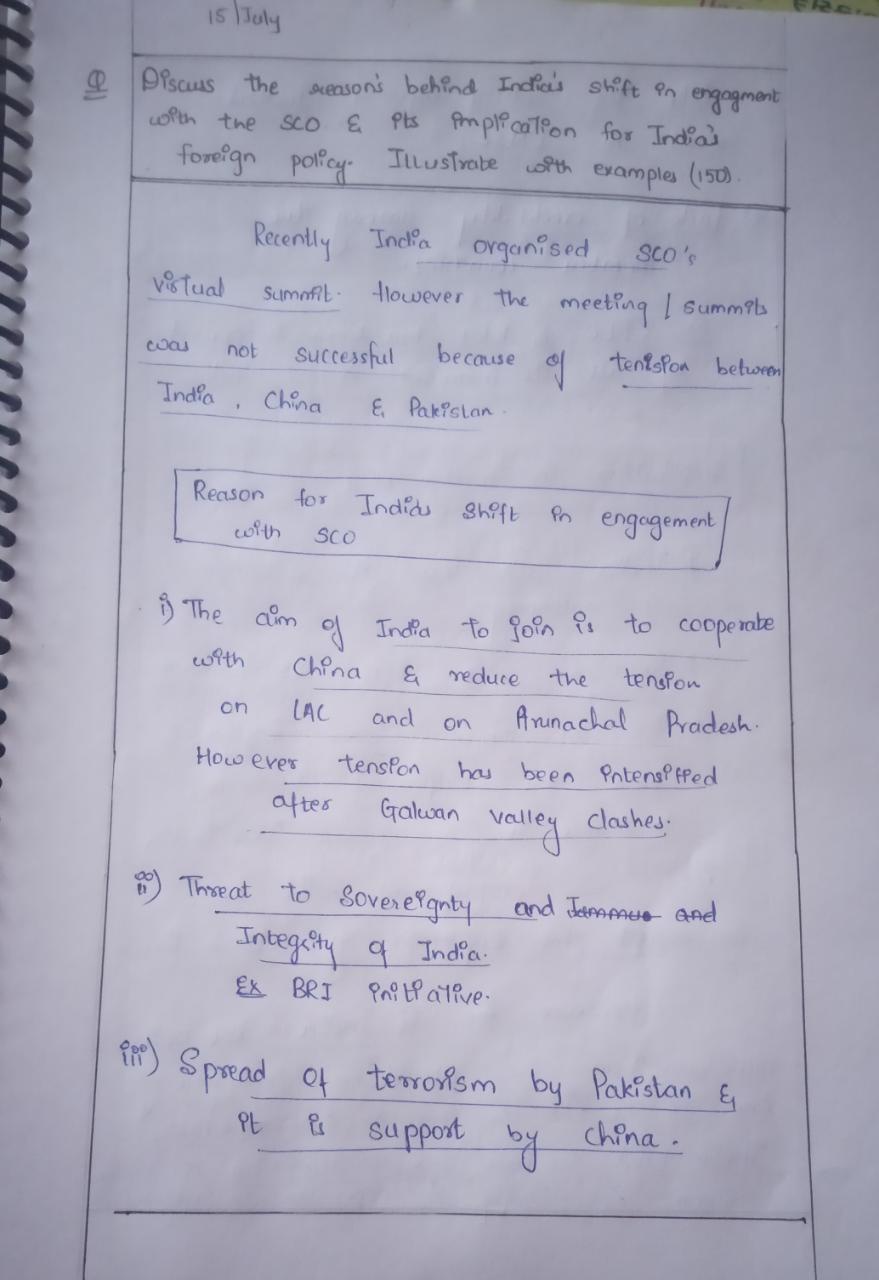 15 | July
Q Discuss the reason's behind India's shift in engagment
with the SCO & its implication for India's
foreign policy. Illustrate with examples (150).
Recently India organised SCO's
virtual summit. However the meeting / summits
was not successful because of tenision between
India, China & Pakistan.
Reason for India's shift in engagement
with SCO
i) The aim of India to join is to cooperate
with China & reduce the tension
on LAC and on Arunachal Pradesh.
However tension has been intensiffed
after Galwan valley clashes.
ii) Threat to Sovereignty and Jammu and
Integrity of India.
Ex BRI initiative.
iii) Spread of terrorism by Pakistan &
it is support by China.